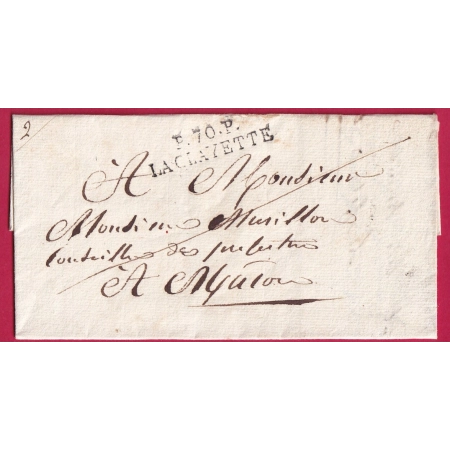 2
P.70.P.
LA CLAYETTE
A Monsieur
Monsieur Murillon
Conseiller de préfecture
A Mâcon